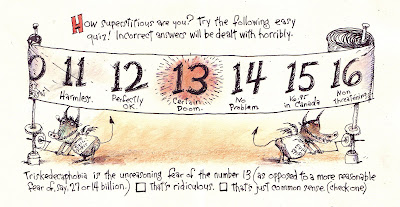 How superstitious are you? Try the following easy
quiz! Incorrect answers will be dealt with horribly.
0 11 12 13 14 15 16
Harmless. Perfectly OK. Certain Doom. No Problem in Canada Non threatening.
Triskedecaphobia is the unreasoning fear of the number 13 (as opposed to a more reasonable
fear of, say, 27 or 14 billion.) □ that's ridiculous. □ that's just common sense. (check one)